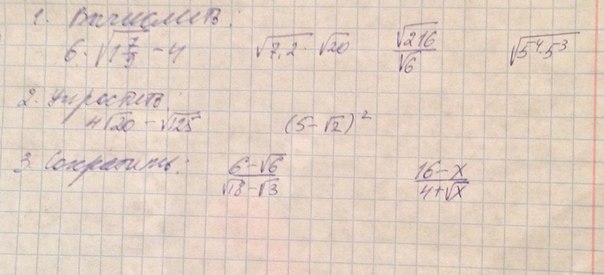 1. Вычислить:
6·√(1 7/9) − 4   √7,2 · √20   √216/√6   √(5⁴·5³)
2. Упростить:
4√20 − √125   (5−√2)²
3. Сократить:
(6−√6)/(√18−√3)   (16−x)/(4+√x)